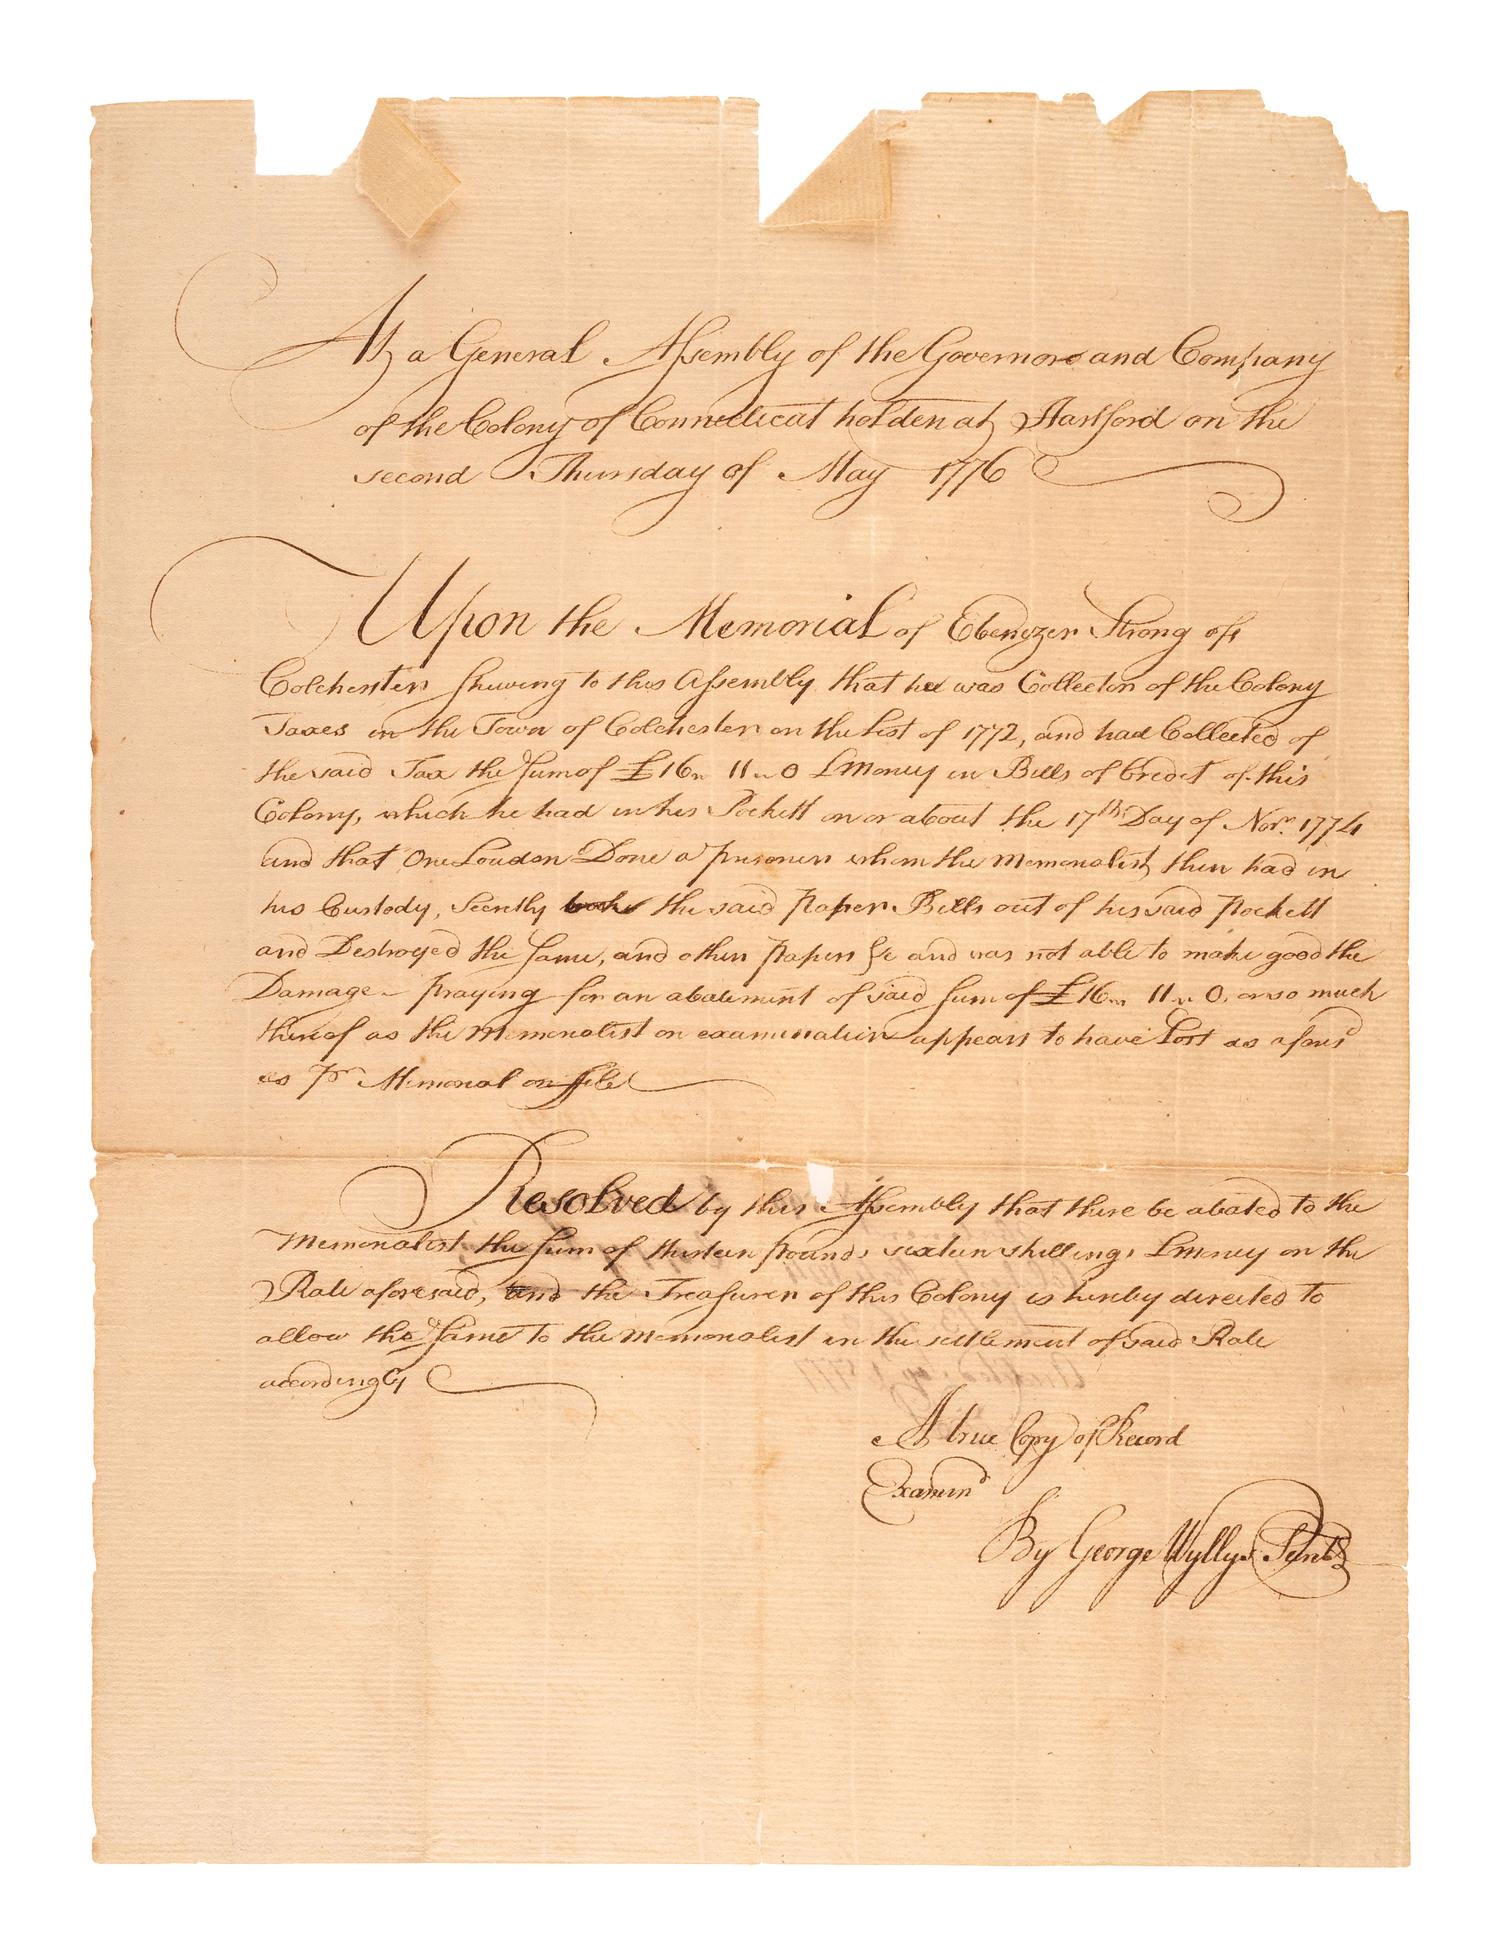 At a General Assembly of the Governor and Company
of the Colony of Connecticut holden at Hartford on the
second Thursday of May 1776
Upon the Memorial of Ebenezer Strong of
Colchester shewing to this Assembly that he was Collector of the Colony
Taxes in the Town of Colchester on the List of 1772, and had Collected of
the said Tax the sum of £16 " 11 " 0 LMoney in Bills of Credit of this
Colony, which he had in his Pockett on or about the 17th Day of Novr. 1774
and that One Loudon Done a prisoner whom the Memorialist then had in
his Custody, Secrtly took the said Paper Bills out of his said Pockett
and Destroyed the same, and other papers &c and was not able to make good the
Damage - praying for an abatement of said sum of £16 " 11 " 0. or so much
thereof as the Memorialist on examination appears to have Lost as aforesd
as pr Memorial on file
Resolved by this Assembly that there be abated to the
Memorialist the sum of thirteen pounds sixteen shillings LMoney on the
Rate aforesaid, and the Treasurer of this Colony is hereby directed to
allow the same to the Memorialist in the settlement of said Rate
accordingly
A true Copy of Record
Examind
By George Wyllys Secrety